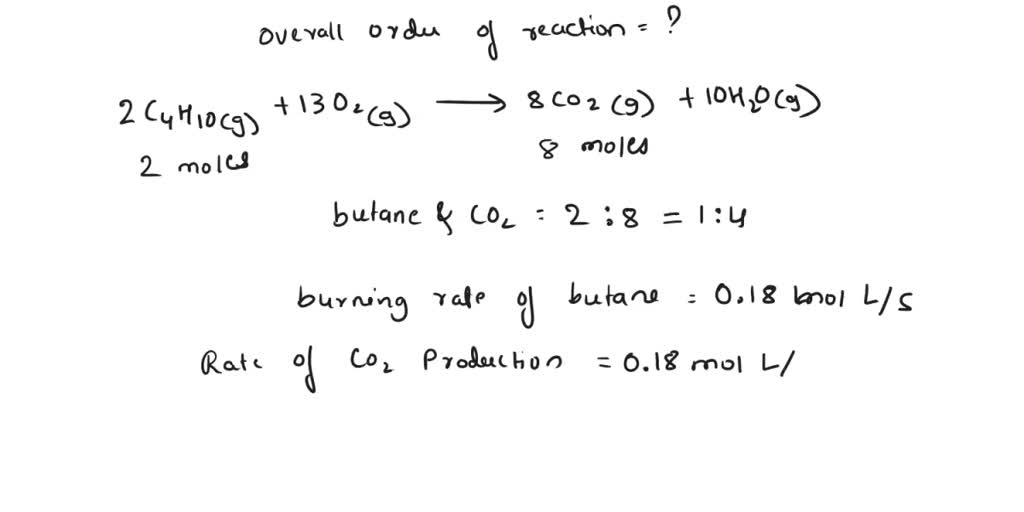 overall order of reaction = ?
2 C4H10(g) + 13 O2(g) → 8 CO2 (g) + 10H2O(g)
2 moles 8 moles
butane & CO2 = 2 : 8 = 1:4
burning rate of butane = 0.18 mol L/s
Rate of CO2 Production = 0.18 mol L/